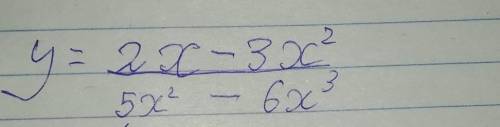 y = 2x - 3x²
5x² - 6x³